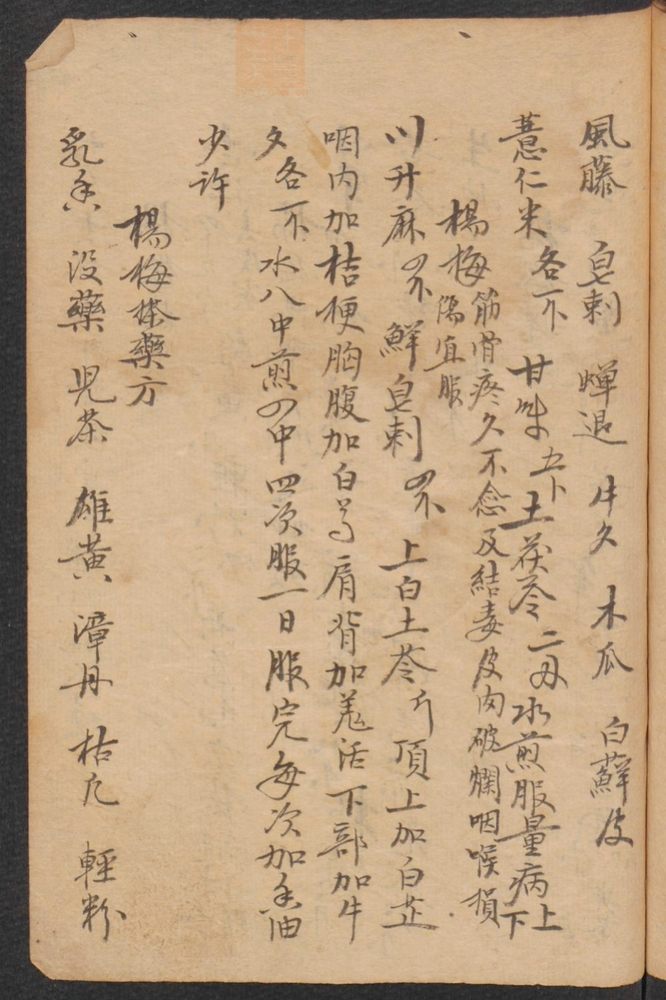 風藤 皂刺 蟬退 牛夕 木瓜 白蘚皮
薏仁米 各一不 甘草 五卜 土茯苓 二刄 水煎服量病上下
楊梅 筋骨疼久不愈及結毒皮肉破爛咽喉損
傷宜服
川升麻 四不 鮮皂刺 四不 上白土苓 斤 頂上加白芷
咽内加桔梗胸腹加白芍肩背加羌活下部加牛
夕各一不水八中煎四中四次服一日服完每次加香油
少許
楊梅搽藥方
乳香 沒藥 児茶 雄黃 漳丹 枯凡 輕粉